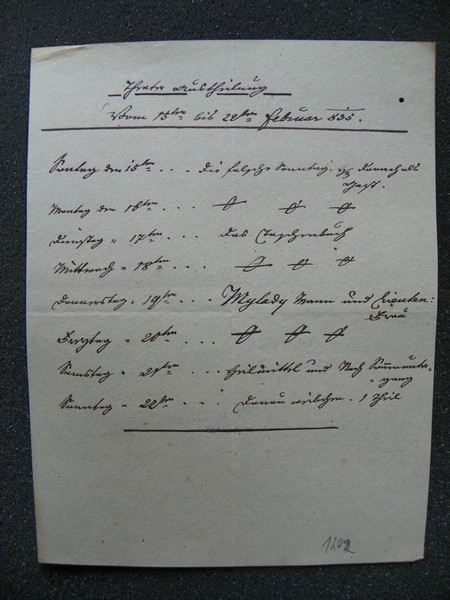 Theater Austheilung
Vom 15ten bis 22ten Februar 835.
Sontag den 15ten . . . Die falsche
Montag den 16ten . . .
Dienstag " 17ten . . . Das Taschenbuch
Mittwoch " 18ten . . .
Donnerstag " 19ten . . . Mylady Mann und
Frau
Freytag " 20ten . . .
Samstag " 21ten . . . Heilmittel und Nach Sonnenunter-
gang
Sonntag " 22ten . . . Donau weibchen. 1 Theil
1202